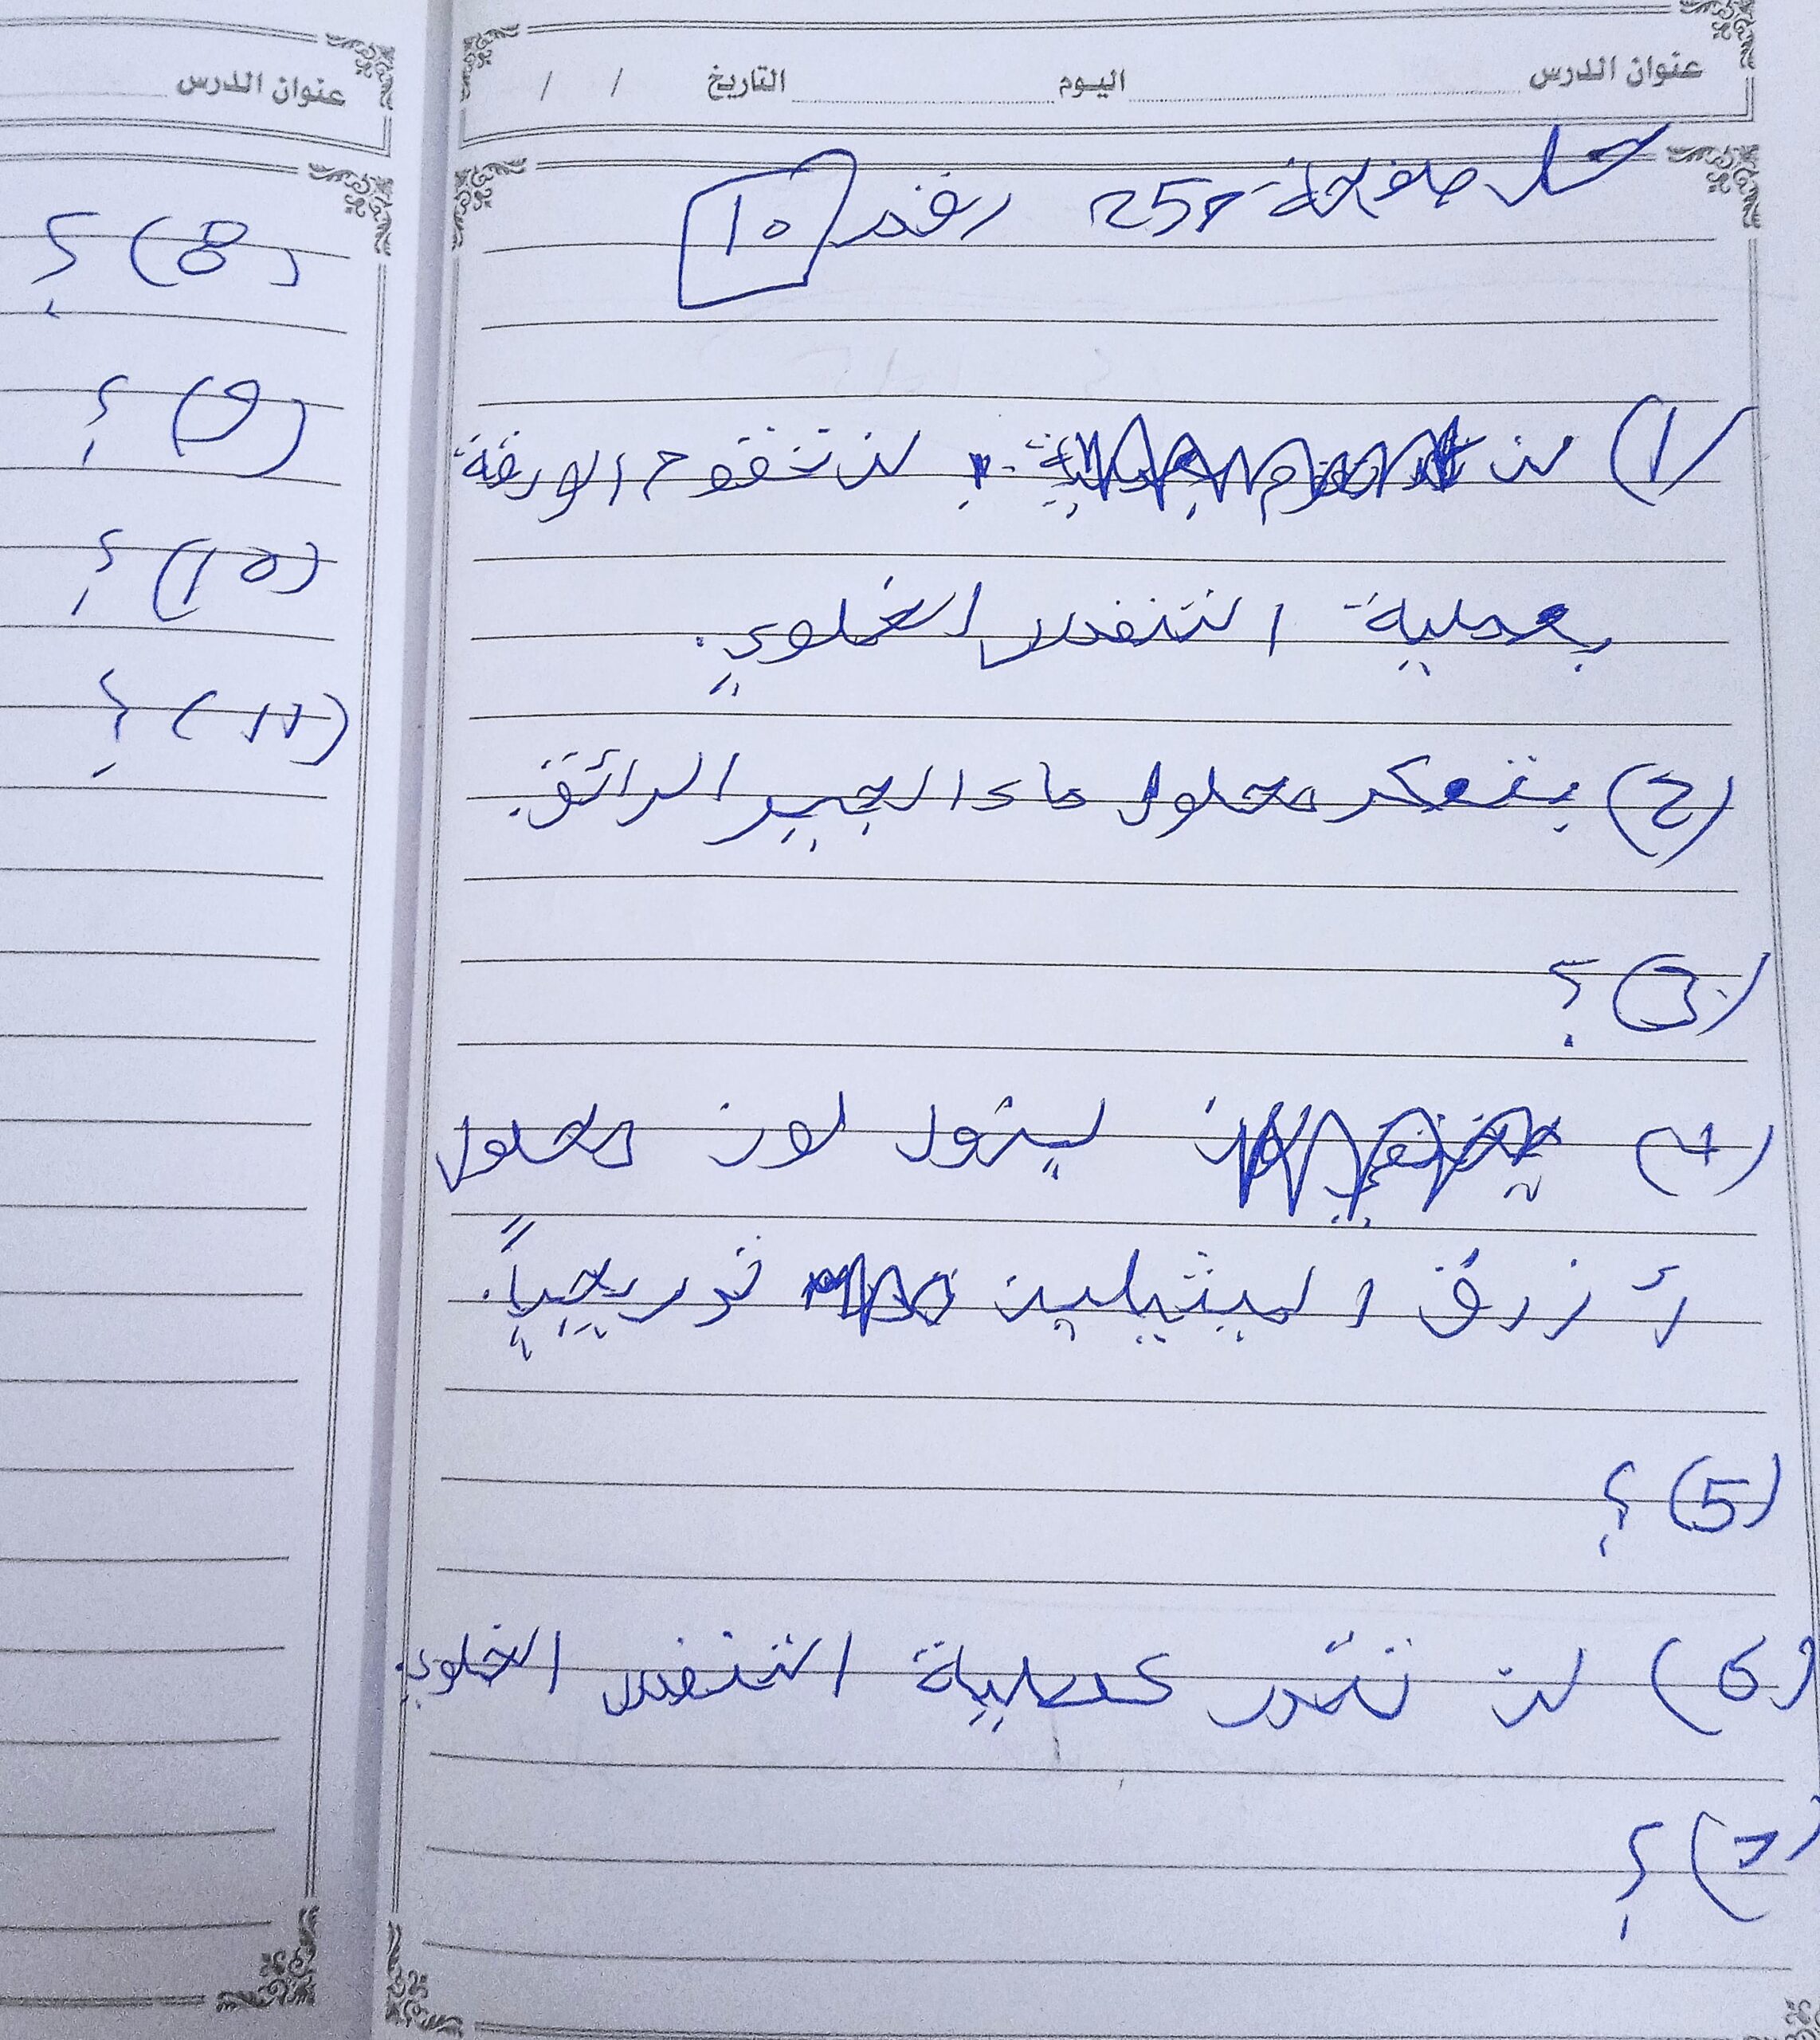 عنوان الدرس اليوم التاريخ / /
حل صفحة 25 رقم 10
(1) لن لن تقوم الورقة
بعملية التنفس الخلوي.
(2) يتعكر محلول ماء الجير الرائق.
(3) ؟
(4) يزول لون محلول
أزرق الميثيلين تدريجياً.
(5) ؟
(6) لن تتم عملية التنفس الخلوي.
(7) ؟
عنوان الدرس
(8) ؟
(9) ؟
(10) ؟
(11) ؟